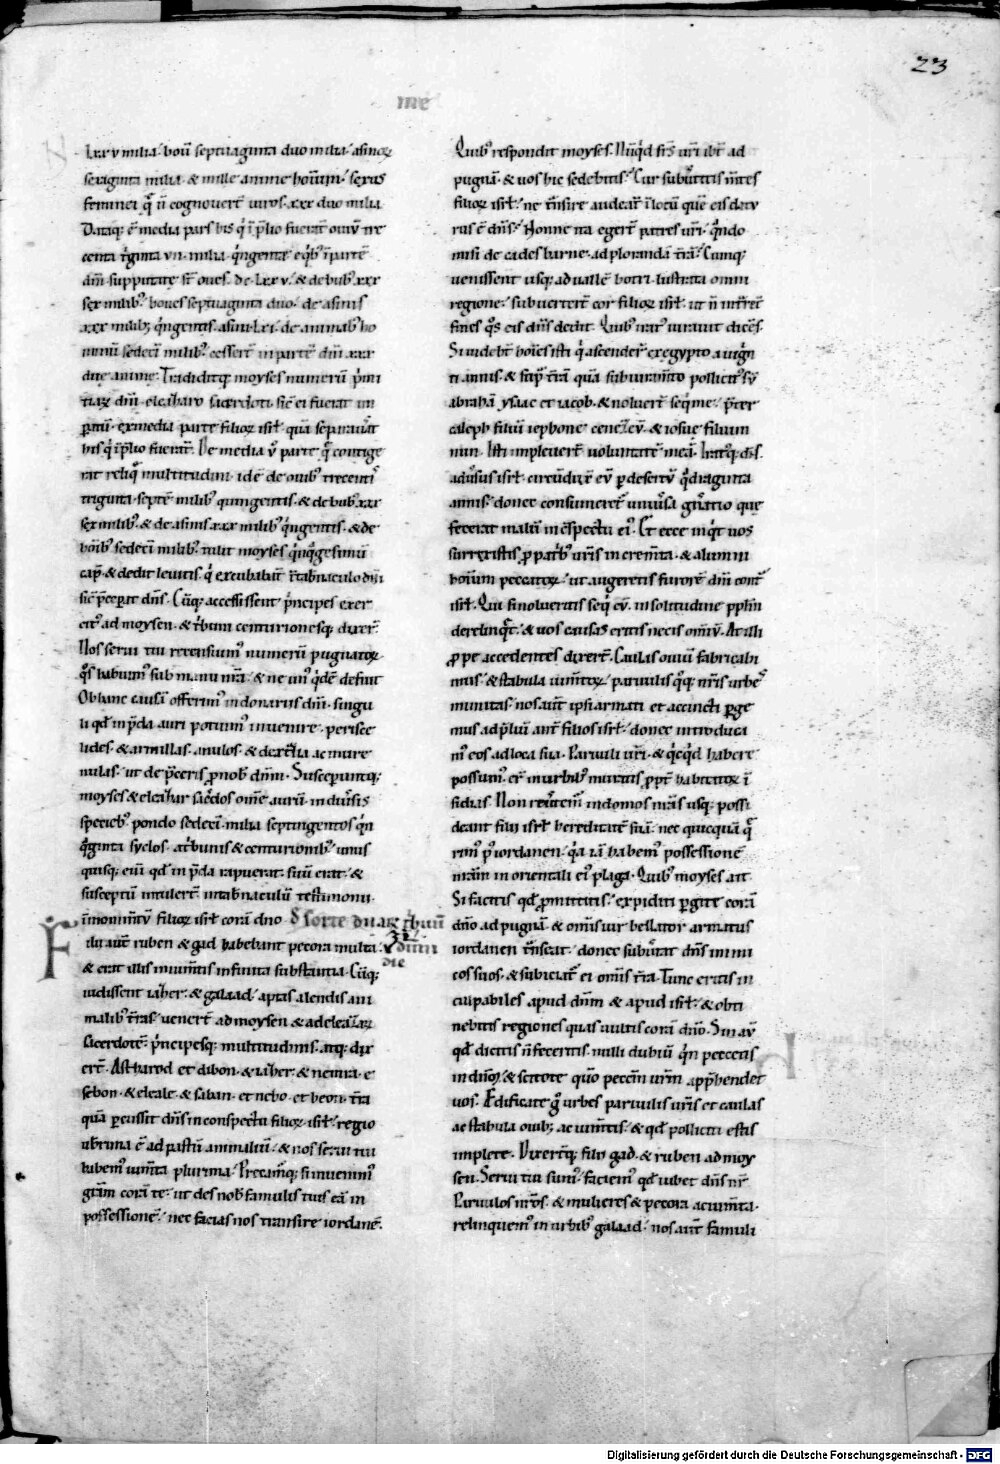 23
me
lxx v milia. boũ septuaginta duo milia. asinoꝝ
sexaginta milia. & mille anime hoĩum. sexus
feminei q̃ ñ cognouert̃ uiros. xxx duo milia
Dataq; ẽ media pars his q̇ ĩ p̃lio fuerat̃ ouiũ tre
centa tͥginta vii. milia. qͥngente eqͥbꝰ ĩ partẽ
dñi supputate st̃ oues. dc. lxx v. & de bubꝰ. xxx
sex milibꝰ. boues septuaginta duo. de asinis
xxx milibꝫ qͥngentis. asini. lxi. de animabꝰ ho
minũ sedecĩ milibꝰ. cessert̃ in partẽ dñi. xxx
due anime. Tradiditq; moyses numerũ pͥmi
tiaꝝ dñi. eleazharo sacerdoti. sic̃ ei fuerat im
peratũ. ex media parte filioꝝ isrł. quã separauat̃
his q̇ ĩ p̃lio fuerat̃. De media ṽ parte q̃ contige
rat reliqͦ multitudini. id ẽ de ouibꝰ trecentiˢ
triginta. septẽ milibꝰ quingentis. & de bubꝰ. xxx
sex milibꝰ. & de asinis. xxx milibꝰ qͥngentis. & de
hoĩbꝰ sedecĩ milibꝰ. tulit moyses qͥnqͣgesimũ
cap̃. & dedit leuitis. q̇ excubabant ĩ tab̃naculo dñi
sic̃ p̃ceperat dñs. Cũq; accessissent pͥncipes exer
citꝰ ad moysen. & tͥbuni centurionesq; dixer̃.
Nos serui tui recensuimꝰ numerũ pugnatoꝝ
qͦs habuimꝰ sub manu nr̃a. & ne unꝰ qͥdẽ defuit
Ob hanc causã offerimꝰ in donariis dñi. singu
li qd̃ in p̃da auri potuimꝰ inuenire. perisce
lides. & armillas. anulos. & dextralia ac mure
nulas. ut de p̃ceris ꝓ nob̃ dñm. Susceperuntq;
moyses & eleazhar sac̃dos om̃e aurũ in diu̾sis
speciebꝰ. pondo sedecĩ. milia septingentos qͥn
qͣginta syclos. a tͥbunis & centurionibꝰ. unus
quisq; eni qd̃ in p̃da rapuerat. suũ erat. &
susceptũ intulert̃. in tab̃naculũ testimonii
ĩ monim̃tũ filioꝝ isrł corã dño. D̃ sorte duaꝝ tͥbuũ
Filii aut̃ ruben & gad habebant pecora multa. & dimi
die
& erat illis in ium̃tis infinita substantia. Cũq;
uidissent iazher. & galaad. aptas alendis ani
malibꝰ tr̃as. uenert̃ ad moysen & ad eleazaꝝ
sacerdotẽ. pͥncipesq; multitudinis. atq; dix
ert̃. Astharod et dibon. & iazher. & nemra. e
sebon. & eleale. & saban. et nebo. et beon. tr̃a
quã percussit dñs in conspectu filioꝝ. isrł. regio
ub̃rima ẽ ad pastũ animaliũ. & nos serui tui
habemꝰ iumm̃ta plurima. Precamͬq; si inuenimꝰ
grãm corã te. ut des nob̃ famulis tuis eã in
possessionẽ. nec facias nos transire iordanẽ.
Quibꝰ respondit moyses. Nũqͥd fr̃s ur̃i ibt̃ ad
pugnã. & uos hic sedebitis. Cur subu̾titis m̃tes
filioꝝ isrł. ne tñsire audeat̃ ĩ locũ quẽ eis datu
rus ẽ dñs. Nonne ita egert̃ patres ur̃i. qͣndo
misi de cades barne. ad plorandã tr̃ã. Cumq;
uenissent usq; ad uallẽ botri. lustrata omni
regione. subuertert̃ cor filioꝝ isrł. ut ñ intrẽt
fines qͦs eis dñs dedit. Quibꝰ iratꝰ iurauit dicẽs.
Si uidebt̃ hoĩes isti q̇ ascender̃ ex egypto a uigĩ
ti annis. & supͣ tr̃ã quã sub iuram̃to pollicitꝰ sũ
abrahã ysaac et iacob. & noluert̃ seqͥ me. p̃ter
caleph filiũ iephone cenezeũ. & iosue filium
nun. Isti impleuert̃ uoluntatẽ meã. Iratꝰq; dñs.
adu̾sus isrł. circũduxͭ eũ ꝑ desertũ qͣdraginta
annis. donec consumeret̃ uniu̾sa gñratio que
fecerat malũ in cõspectu eiꝰ. Et ecce inqͥt uos
surrexistis ꝓ patͥbꝰ ur̃is increm̃ta. & alumni
hoĩum peccatoꝝ. ut augeretis furorẽ dñi contͣ
isrł. Qui si nolueritis seqͥ eũ. in solitudine pplm̃
derelinqͭ. & uos causa eritis necis om̃iũ. At illi
ꝓpe accedentes dixert̃. Caulas ouiũ fabricabi
mus. & stabula iumm̃toꝝ. paruulis qͦq; nr̃is urbeˢ
munitas. nos aut̃ ipsi armati et accincti ꝑge
mus ad p̃liũ ant̃ filios isrł. donec introduca
mꝰ eos ad loca sua. Paruuli ur̃i. & qͥcqͥd habere
possumꝰ. er̃ in urbibꝰ muratis ꝓpt̃ habitatoꝝ ĩ
sidias. Non reu̾temͬ in domos nr̃as usq; possi
deant filii isrł hereditatẽ suã. nec quicquã q̃
rimꝰ tͣns iordanen. qͥa iã habemꝰ possessionẽ
nr̃am in orientali eiꝰ plaga. Quibꝰ moyses ait
Si facitis qd̃ ꝓmittitis. expediti ꝑgite corã
dño ad pugnã. & omĩs uir bellator armatus
iordanen tñseat. donec subu̾tat dñs inimi
cos suos. & subiciat̃ ei omĩs tr̃a. Tunc eritis in
culpabiles apud dñm & apud isrł. & obti
nebitis regiones quas uultis corã dño. Sin aũ
qd̃ dicitis ñ feceritis. nulli dubiũ qͥn peccetis
in dñm. & scitote qm̃ peccm̃ ur̃m app̃hendet
uos. Edificate gͦ urbes paruulis ur̃is et caulas
ac stabula ouibꝫ ac iumm̃tis. & qd̃ polliciti estis
implete. Dixertq; filii gad. & ruben ad moy
sen. Serui tui sumꝰ. faciemꝰ qd̃ iubet dñs nr̃.
Paruulos nr̃os. & mulieres & pecora ac iumm̃ta.
relinquemꝰ in urbibꝰ galaad. nos aut̃ famuli
Digitalisierung gefördert durch die Deutsche Forschungsgemeinschaft - DFG